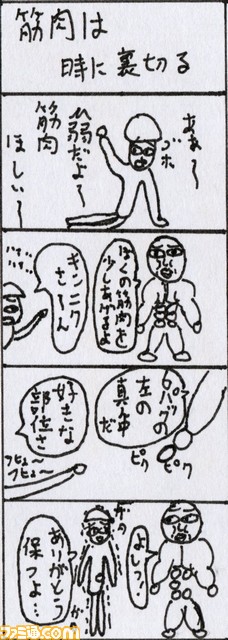 筋肉は
時に裏切る
ああ〜
ゴホ
ひ弱だよ〜
筋肉
ほしい〜
ぼくの筋肉を
少しあげるよ
キンニク
さ〜ん
6パックの
左の
真ん中
だ
ピク
ピク
好きな
部位さ
フヒュ〜
フヒュ〜
よしっ!
ガタ
ガタ
ありがとう
保つよ…
ファミ通.com